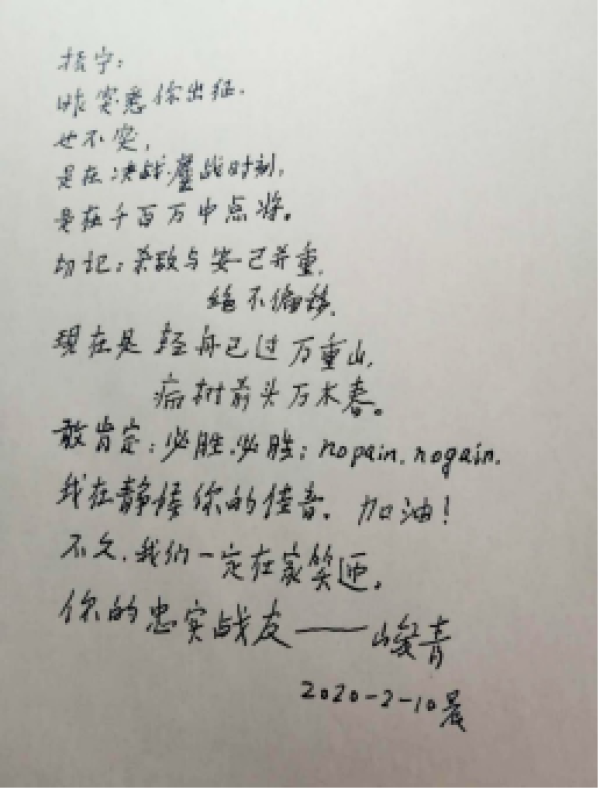 括宁:
昨突悉你出征.
也不突,
是在决战.鏖战时刻,
是在千百万中点将。
切记:杀敌与安己并重,
绝不偏移.
現在是 轻舟已过万重山,
病树前头万木春。
敢肯定:必胜.必胜; no pain. no gain.
我在静候你的佳音. 加油!
不久.我们一定在家笑迎。
你的忠实战友——峻青
2020-2-10晨